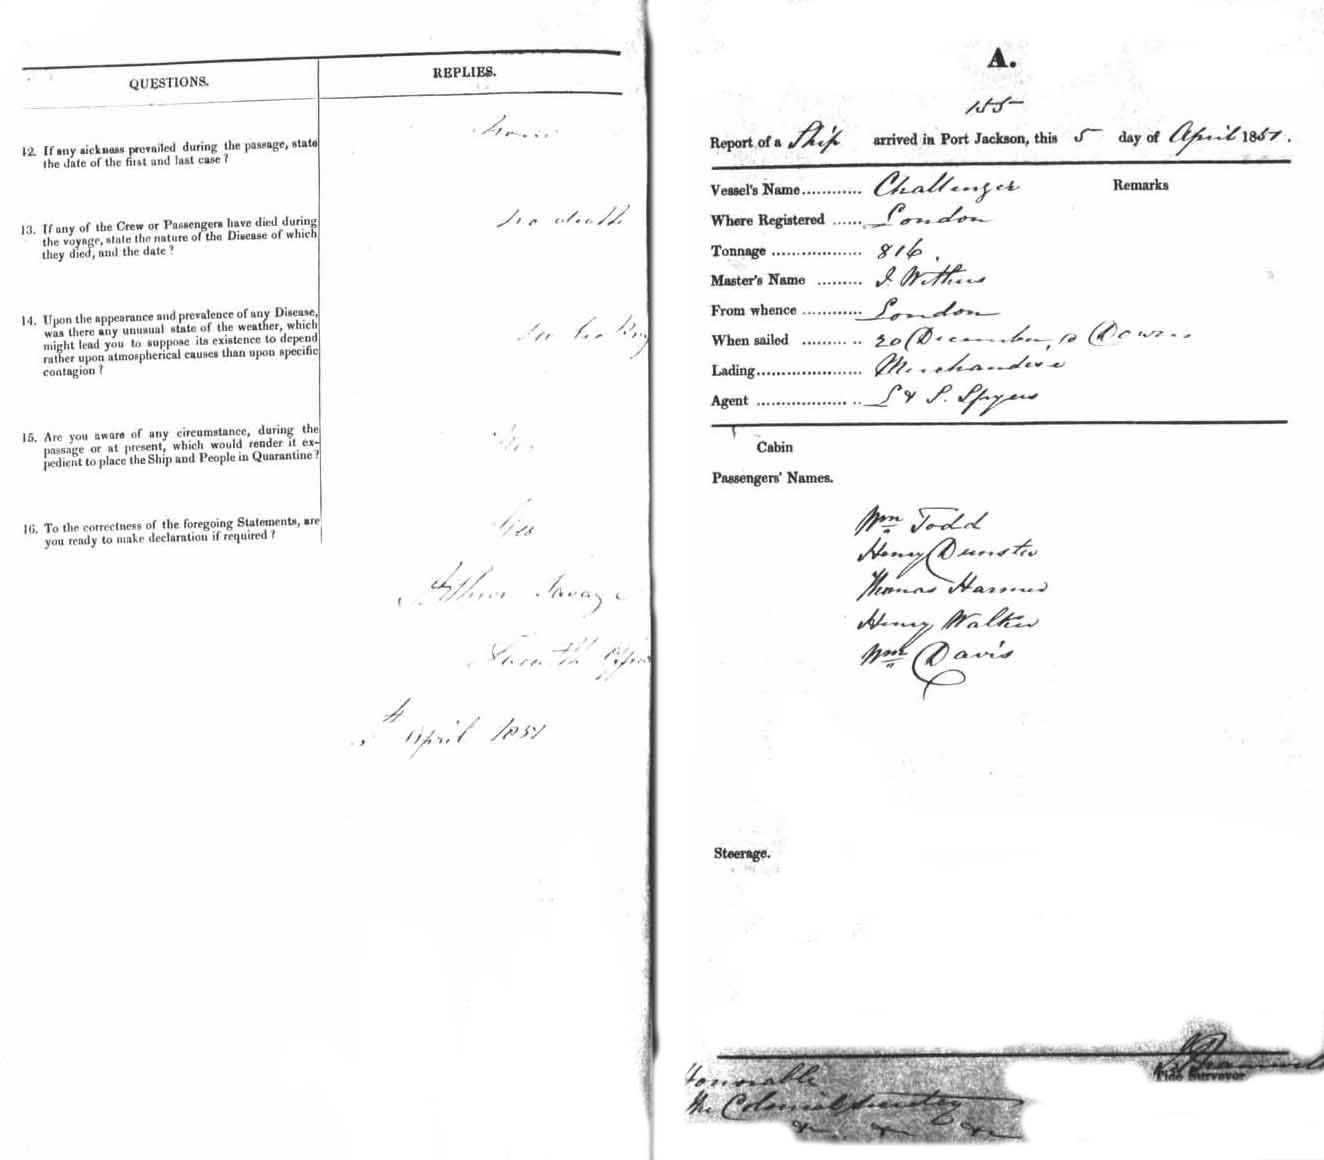 QUESTIONS.
REPLIES.
12. If any sickness prevailed during the passage, state
the date of the first and last case ?
13. If any of the Crew or Passengers have died during
the voyage, state the nature of the Disease of which
they died, and the date ?
No death
14. Upon the appearance and prevalence of any Disease,
was there any unusual state of the weather, which
might lead you to suppose its existence to depend
rather upon atmospherical causes than upon specific
contagion ?
15. Are you aware of any circumstance, during the
passage or at present, which would render it ex-
pedient to place the Ship and People in Quarantine ?
16. To the correctness of the foregoing Statements, are
you ready to make declaration if required ?
Yes
Arthur Savage
5th April 1851
A.
155
Report of a Ship arrived in Port Jackson, this 5 day of April 1851.
Vessel's Name............ Challenger
Remarks
Where Registered ...... London
Tonnage .................. 816.
Master's Name ......... Withers
From whence ............ London
When sailed ......... .. 20 December, Downs
Lading..................... Merchandise
Agent .................. .. L & S. Spyers
Cabin
Passengers' Names.
Wm Todd
Henry Dunster
Thomas Harmer
Henry Walker
Wm Davis
Steerage.
Tide Surveyor
Honorable
the Colonial Secretary
&c. &c &c